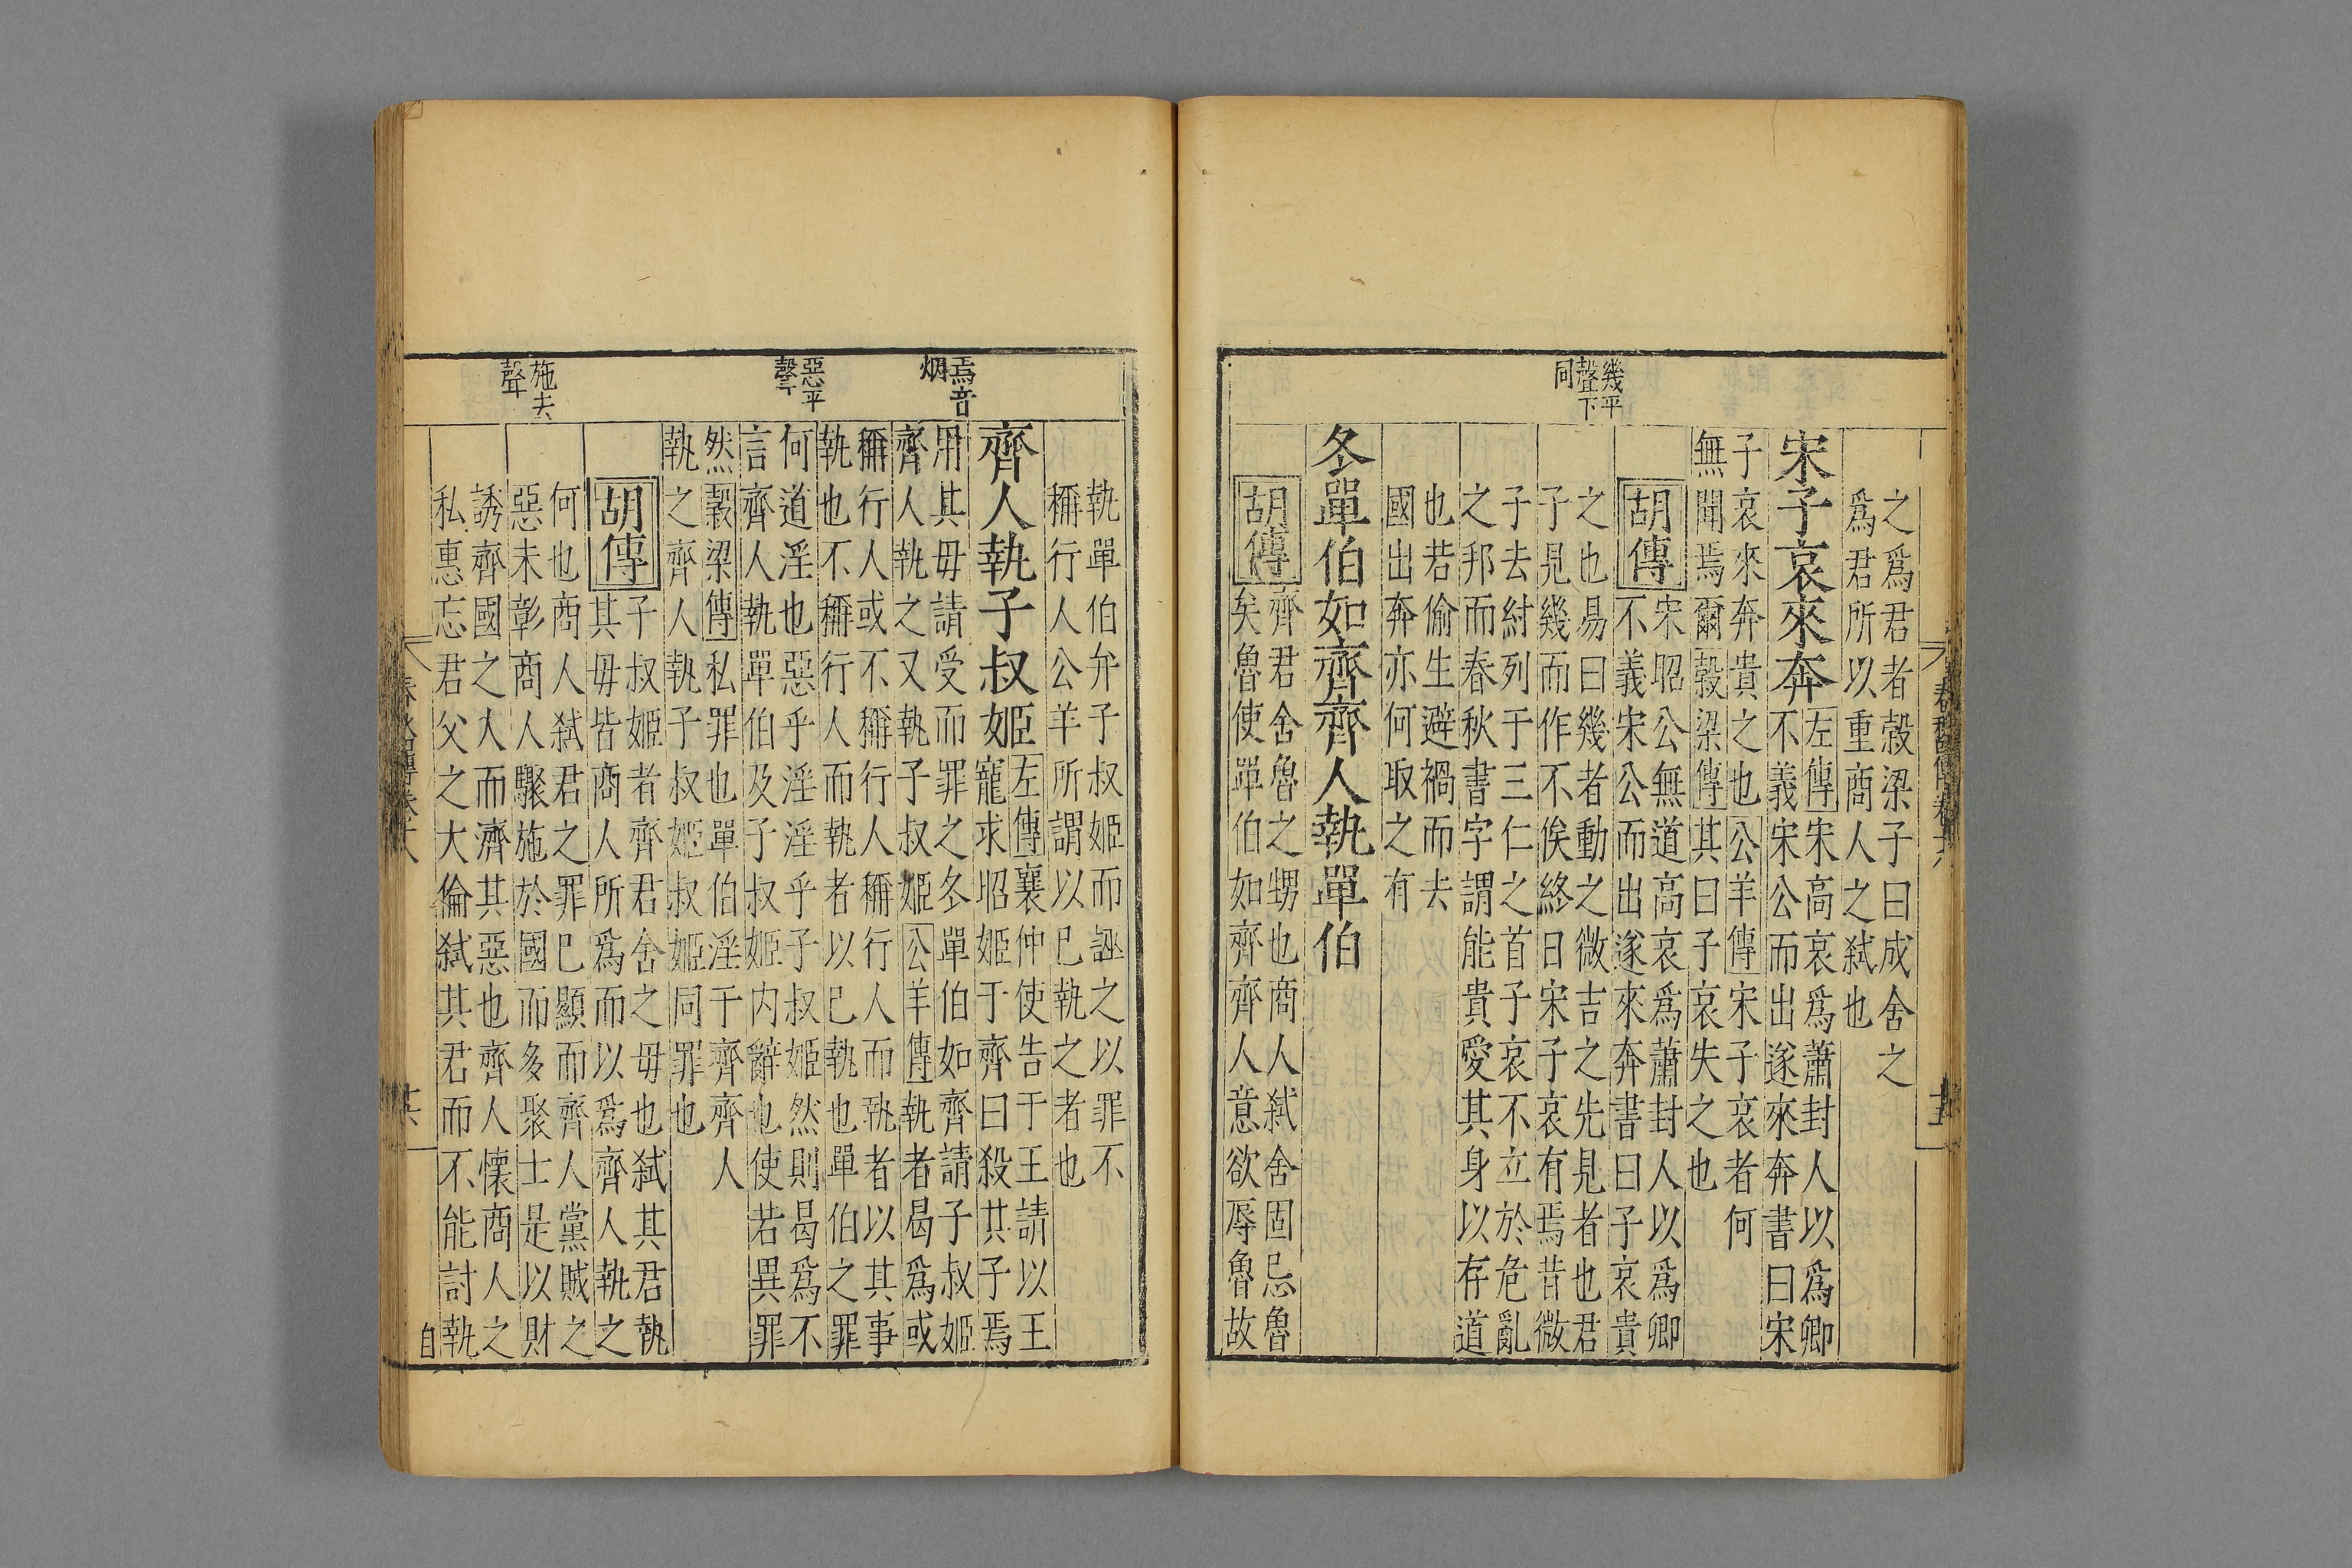 幾平
聲下
同
之爲君者榖梁子曰成舍之
爲君所以重商人之弑也
宋子哀來奔
左傳宋高哀爲蕭封人以爲卿
不義宋公而出遂來奔書曰宋
子哀來奔貴之也公羊傳宋子哀者何
無聞焉爾榖梁傳其曰子哀失之也
胡傳
宋昭公無道高哀爲蕭封人以爲卿
不義宋公而出遂來奔書曰子哀貴
之也易曰幾者動之微吉之先見者也君
子見幾而作不俟終日宋子哀有焉昔微
子去紂列于三仁之首子哀不立於危亂
之邦而春秋書字謂能貴愛其身以存道
也若偷生避禍而去
國出奔亦何取之有
冬單伯如齊齊人執單伯
胡傳
齊君舍魯之甥也商人弑舍固忌魯
矣魯使單伯如齊齊人意欲辱魯故
焉音
烟
惡平
聲
施去
聲
執單伯弁子叔姬而誣之以罪不
稱行人公羊所謂以已執之者也
齊人執子叔姬
左傳襄仲使告于王請以王
寵求昭姬于齊曰殺其子焉
用其毋請受而罪之冬單伯如齊請子叔姬
齊人執之又執子叔姬公羊傳執者曷爲或
稱行人或不稱行人稱行人而執者以其事
執也不稱行人而執者以已執也單伯之罪
何道淫也惡乎淫淫乎子叔姬然則曷爲不
言齊人執單伯及子叔姬内辭也使若異罪
然榖梁傳私罪也單伯淫于齊齊人
執之齊人執子叔姬叔姬同罪也
胡傳
子叔姬者齊君舍之毋也弑其君執
其毋皆商人所爲而以爲齊人執之
何也商人弑君之罪已顯而齊人黨賊之
惡未彰商人驟施於國而多聚士是以財
誘齊國之人而濟其惡也齊人懷商人之
私惠忘君父之大倫弑其君而不能討執
自